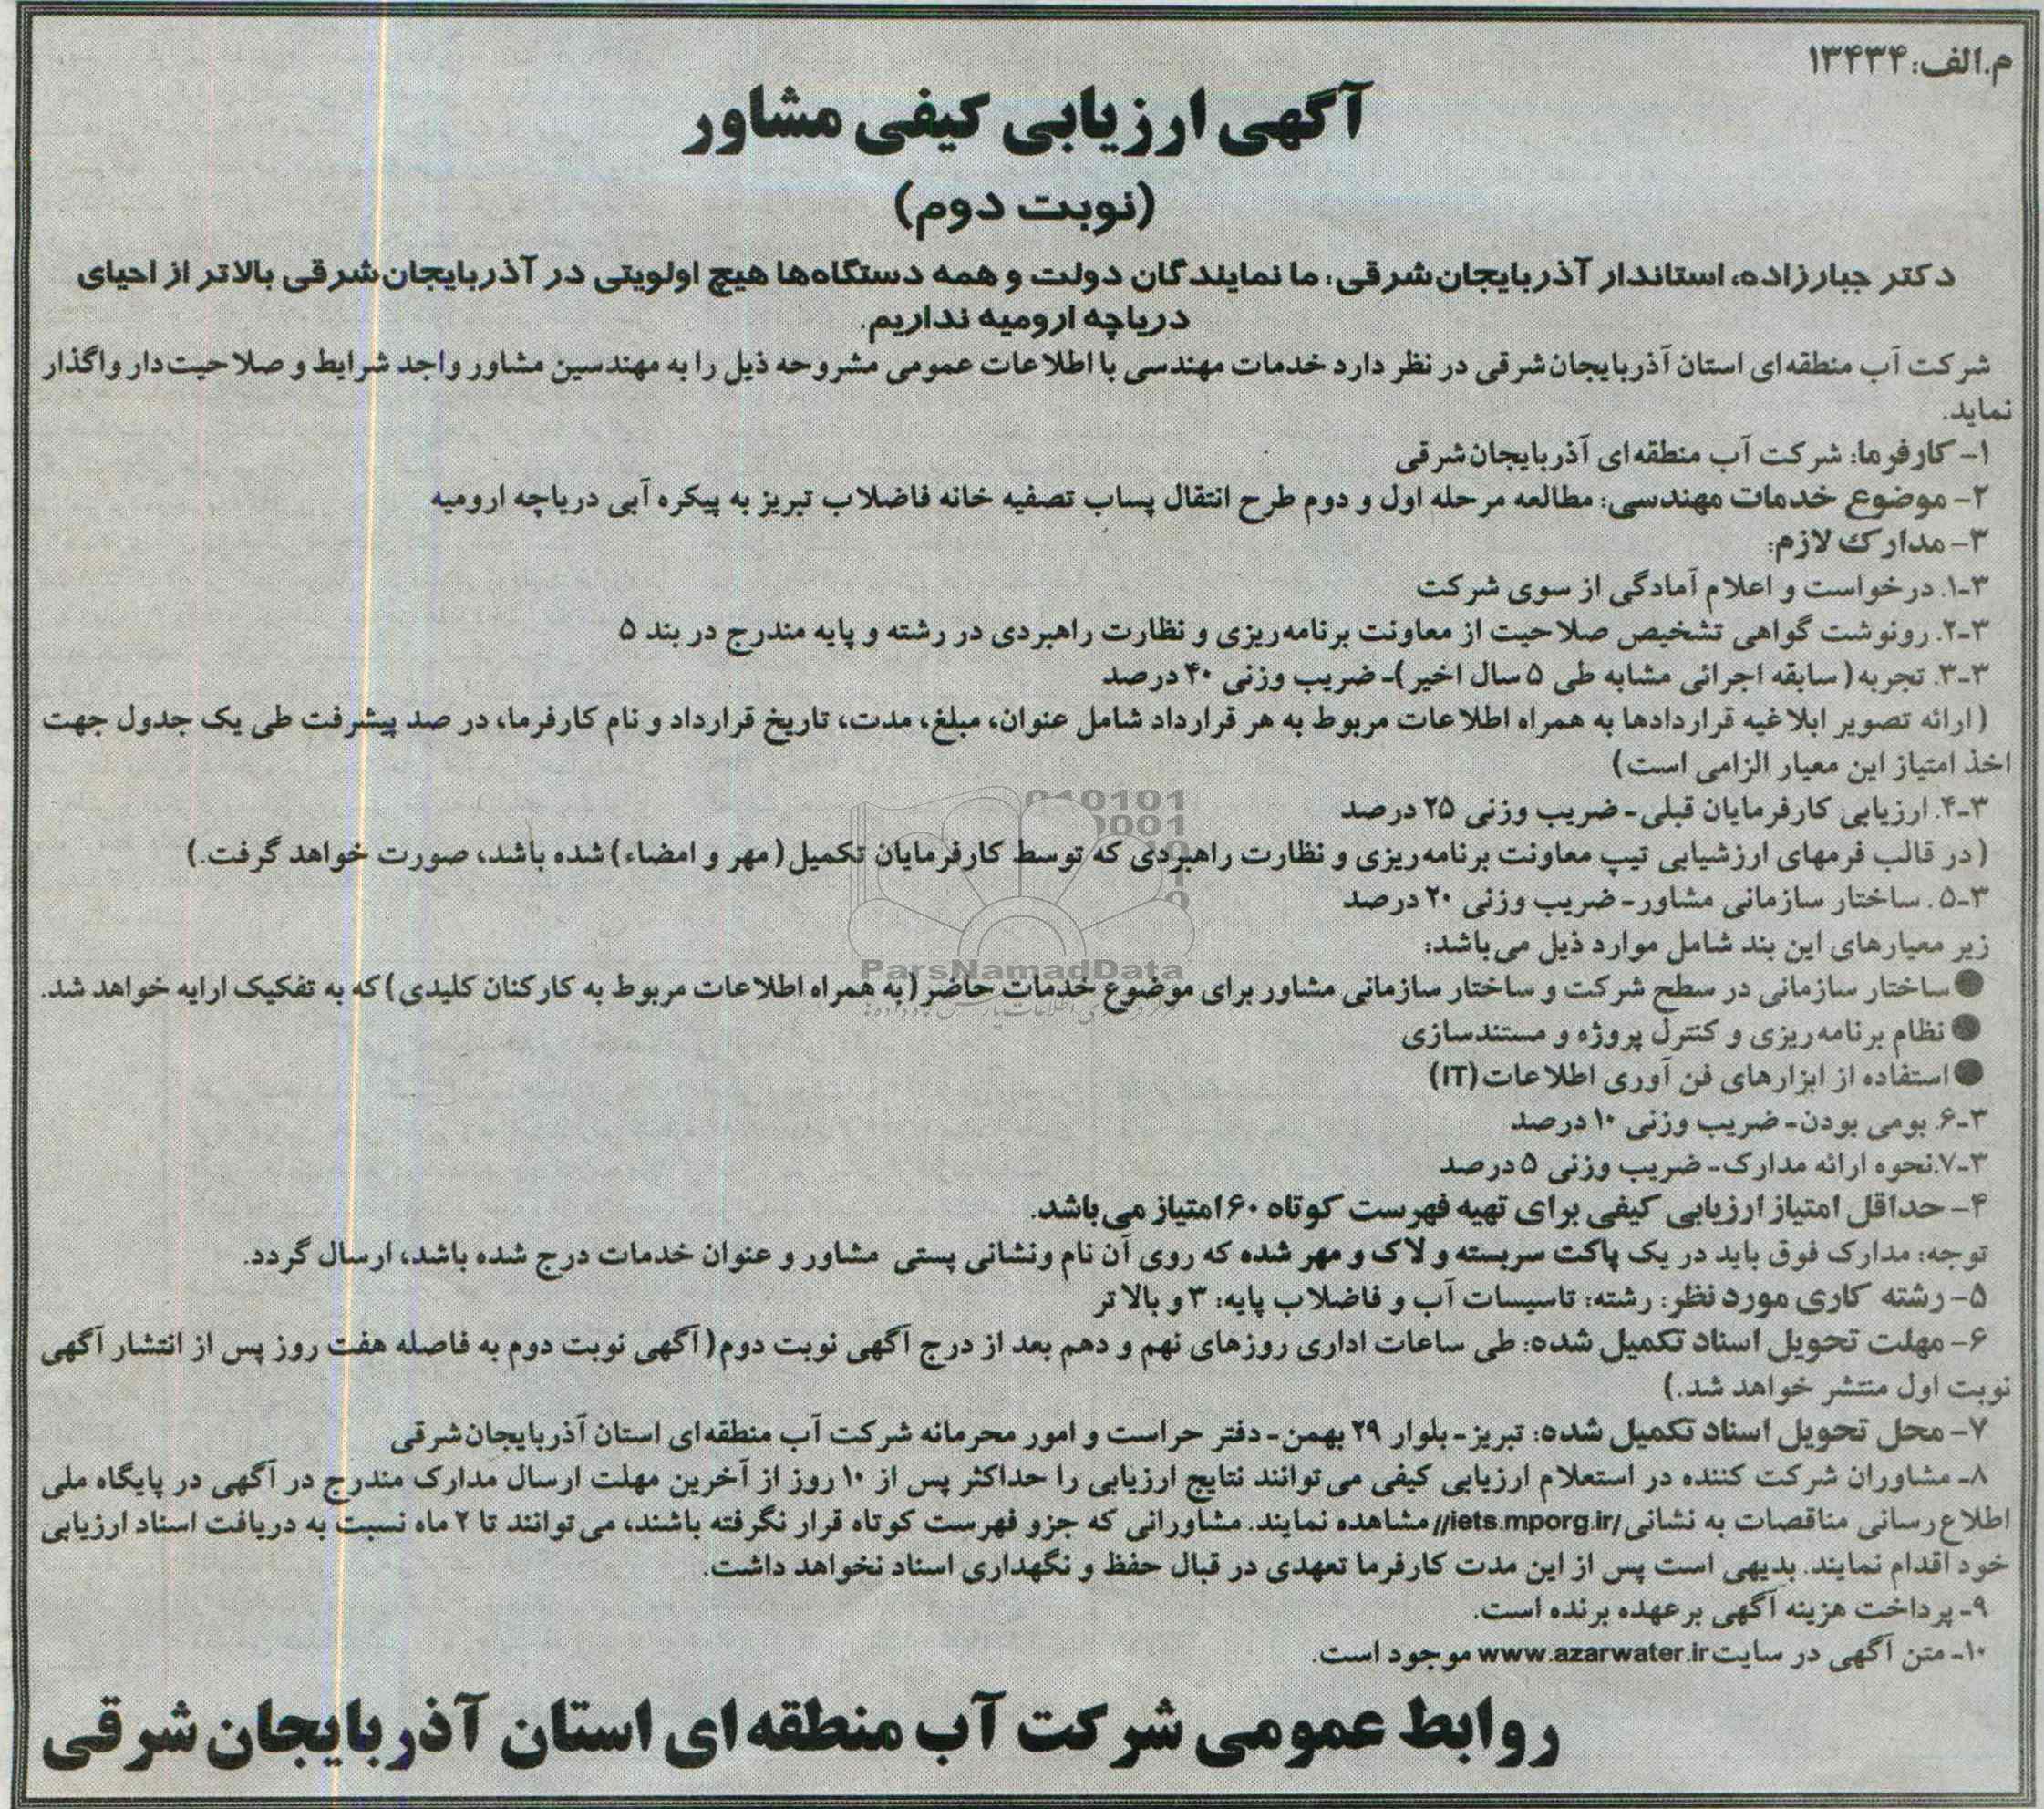 م.الف: ۱۳۴۳۴
آگهی ارزیابی کیفی مشاور
(نوبت دوم)
دکتر جبارزاده، استاندار آذربایجان‌شرقی: ما نمایندگان دولت و همه دستگاه‌ها هیچ اولویتی در آذربایجان‌شرقی بالاتر از احیای
دریاچه ارومیه نداریم.
شرکت آب منطقه‌ای استان آذربایجان‌شرقی در نظر دارد خدمات مهندسی با اطلاعات عمومی مشروحه ذیل را به مهندسین مشاور واجد شرایط و صلاحیت‌دار واگذار
نماید.
۱- کارفرما: شرکت آب منطقه‌ای آذربایجان‌شرقی
۲- موضوع خدمات مهندسی: مطالعه مرحله اول و دوم طرح انتقال پساب تصفیه خانه فاضلاب تبریز به پیکره آبی دریاچه ارومیه
۳- مدارک لازم:
۳-۱. درخواست و اعلام آمادگی از سوی شرکت
۳-۲. رونوشت گواهی تشخیص صلاحیت از معاونت برنامه‌ریزی و نظارت راهبردی در رشته و پایه مندرج در بند ۵
۳-۳. تجربه (سابقه اجرائی مشابه طی ۵ سال اخیر)- ضریب وزنی ۴۰ درصد
(ارائه تصویر ابلاغیه قراردادها به همراه اطلاعات مربوط به هر قرارداد شامل عنوان، مبلغ، مدت، تاریخ قرارداد و نام کارفرما، در صد پیشرفت طی یک جدول جهت
اخذ امتیاز این معیار الزامی است)
۳-۴. ارزیابی کارفرمایان قبلی- ضریب وزنی ۲۵ درصد
(در قالب فرمهای ارزشیابی تیپ معاونت برنامه‌ریزی و نظارت راهبردی که توسط کارفرمایان تکمیل (مهر و امضاء) شده باشد، صورت خواهد گرفت.)
۳-۵. ساختار سازمانی مشاور- ضریب وزنی ۲۰ درصد
زیر معیارهای این بند شامل موارد ذیل می‌باشد:
● ساختار سازمانی در سطح شرکت و ساختار سازمانی مشاور برای موضوع خدمات حاضر (به همراه اطلاعات مربوط به کارکنان کلیدی) که به تفکیک ارایه خواهد شد.
● نظام برنامه‌ریزی و کنترل پروژه و مستندسازی
● استفاده از ابزارهای فن آوری اطلاعات (IT)
۳-۶. بومی بودن- ضریب وزنی ۱۰ درصد
۳-۷. نحوه ارائه مدارک- ضریب وزنی ۵ درصد
۴- حداقل امتیاز ارزیابی کیفی برای تهیه فهرست کوتاه ۶۰ امتیاز می‌باشد.
توجه: مدارک فوق باید در یک پاکت سربسته و لاک و مهر شده که روی آن نام ونشانی پستی مشاور و عنوان خدمات درج شده باشد، ارسال گردد.
۵- رشته کاری مورد نظر: رشته: تاسیسات آب و فاضلاب پایه: ۳ و بالاتر
۶- مهلت تحویل اسناد تکمیل شده: طی ساعات اداری روزهای نهم و دهم بعد از درج آگهی نوبت دوم (آگهی نوبت دوم به فاصله هفت روز پس از انتشار آگهی
نوبت اول منتشر خواهد شد.)
۷- محل تحویل اسناد تکمیل شده: تبریز- بلوار ۲۹ بهمن- دفتر حراست و امور محرمانه شرکت آب منطقه‌ای استان آذربایجان‌شرقی
۸- مشاوران شرکت کننده در استعلام ارزیابی کیفی می‌توانند نتایج ارزیابی را حداکثر پس از ۱۰ روز از آخرین مهلت ارسال مدارک مندرج در آگهی در پایگاه ملی
اطلاع‌رسانی مناقصات به نشانی //iets.mporg.ir/ مشاهده نمایند. مشاورانی که جزو فهرست کوتاه قرار نگرفته باشند، می‌توانند تا ۲ ماه نسبت به دریافت اسناد ارزیابی
خود اقدام نمایند. بدیهی است پس از این مدت کارفرما تعهدی در قبال حفظ و نگهداری اسناد نخواهد داشت.
۹- پرداخت هزینه آگهی برعهده برنده است.
۱۰- متن آگهی در سایت www.azarwater.ir موجود است.
روابط عمومی شرکت آب منطقه‌ای استان آذربایجان‌شرقی
ParsNamadData